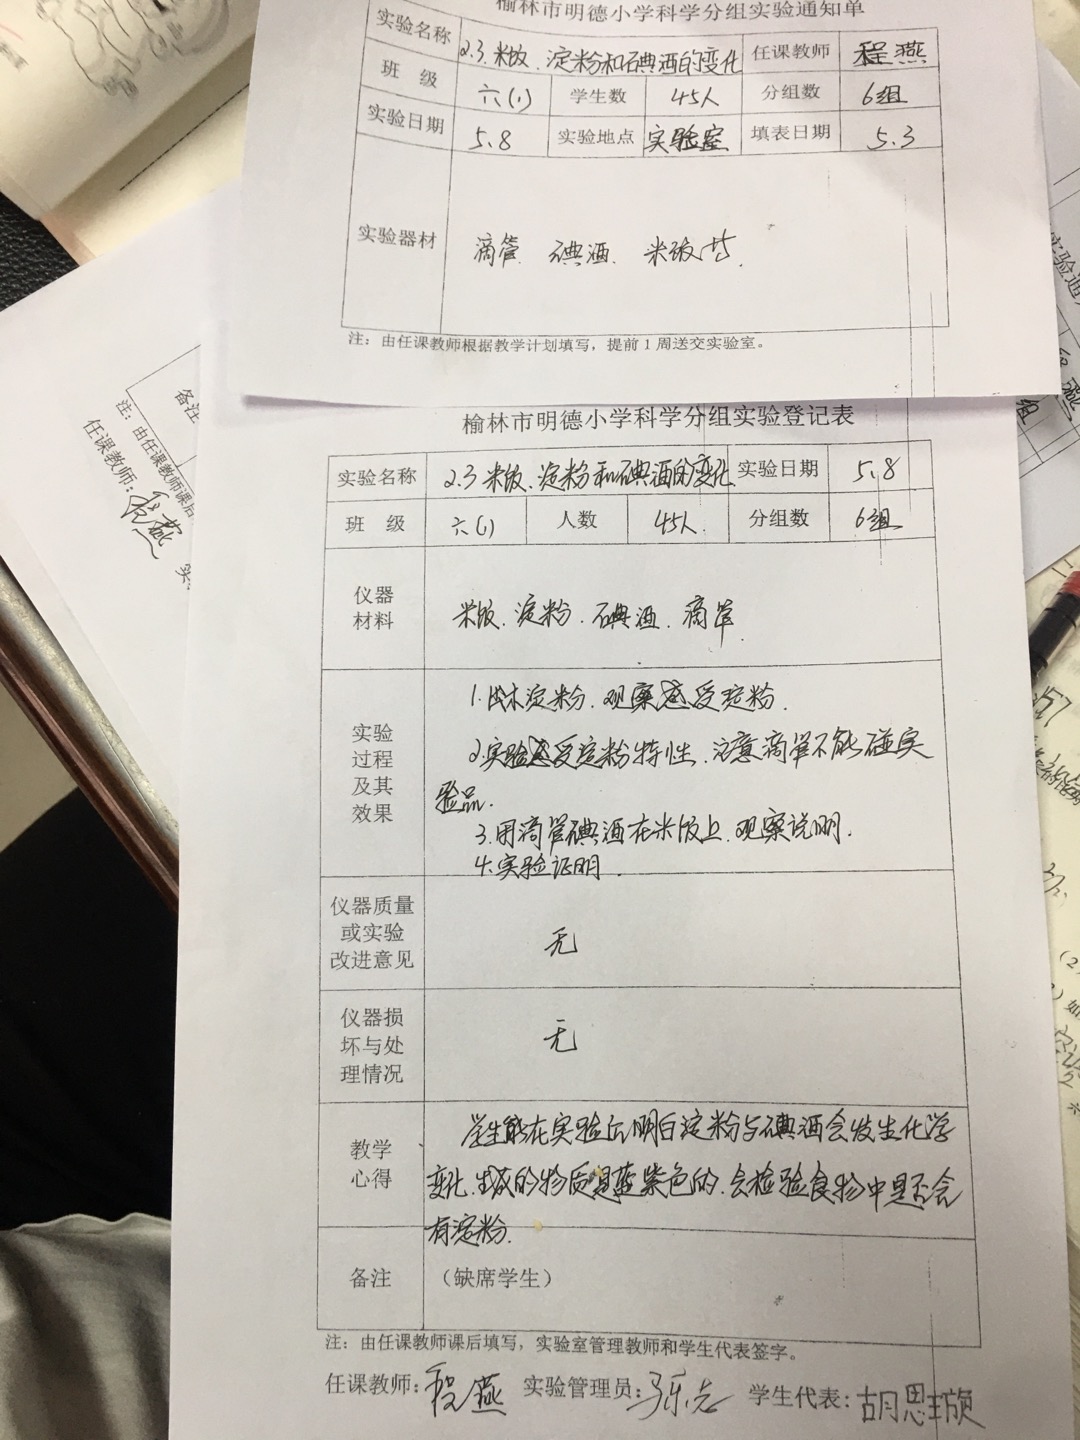 榆林市明德小学科学分组实验通知单
实验名称 2.3.米饭、淀粉和碘酒的变化 任课教师 程燕
班 级 六(1) 学生数 45人 分组数 6组
实验日期 5.8 实验地点 实验室 填表日期 5.3
实验器材 滴管 碘酒 米饭
注：由任课教师根据教学计划填写，提前1周送交实验室。
榆林市明德小学科学分组实验登记表
实验名称 2.3 米饭、淀粉和碘酒的变化 实验日期 5.8
班 级 六(1) 人数 45人 分组数 6组
仪器
材料
米饭、淀粉、碘酒、滴管
实验
过程
及其
效果
1. 淀粉、观察感受淀粉.
2.实验感受淀粉特性、注意滴管不能碰实
验品.
3.用滴管碘酒在米饭上、观察说明.
4.实验证明.
仪器质量
或实验
改进意见
无
仪器损
坏与处
理情况
无
教学
心得
学生能在实验后明白淀粉与碘酒会发生化学
变化、生成的物质是蓝紫色的、会检验食物中是否含
有淀粉.
备注 （缺席学生）
注：由任课教师课后填写，实验室管理教师和学生代表签字。
任课教师: 程燕 实验管理员: 学生代表: 胡思璇
备注
注：由任课教师课后
任课教师: 程燕
实验通
组